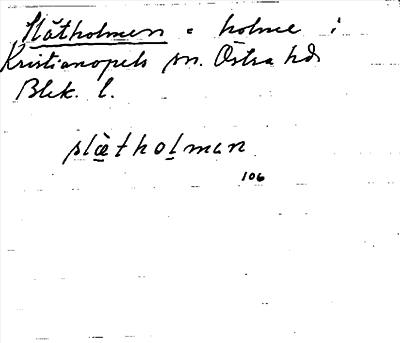 Slätholmen = holme i
Kristianopels sn. Östra hd
Blek. l.
slæ̀tholmən
106